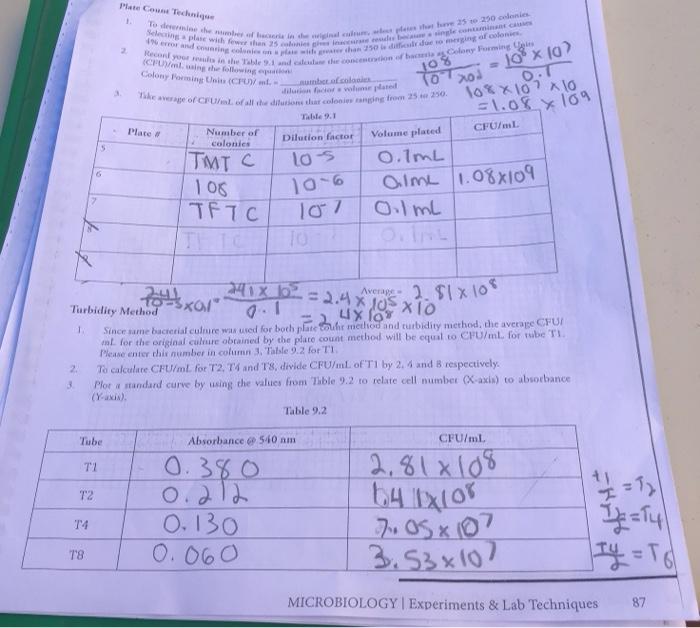 Plate Count Technique
1. To determine the number of bacteria in the original culture, select plates that have 25 to 250 colonies.
Selecting a plate with fewer than 25 colonies gives inaccurate results because a single contaminant causes
4% error and counting colonies on a plate with greater than 250 is difficult due to merging of colonies.
2. Record your results in the Table 9.1 and calculate the concentration of bacteria as Colony Forming Units
(CFU)/mL using the following equation:
Colony Forming Units (CFU)/ mL = number of colonies
dilution factor x volume plated
108 = 108 x 107
0.1
108 x 107 x 10
= 1.08 x 109
3. Take average of CFU/mL of all the dilutions that colonies ranging from 25 to 250.
Table 9.1
Plate # Number of colonies Dilution factor Volume plated CFU/mL
5 TMTC 10-5 0.1mL
6 108 10-6 0.1mL 1.08x109
7 TFTC 107 0.1mL
TFTC 10 0.1mL
Average = 2.81 x 108
241 241 x 105 = 2.4 x 105 x 10
0.1 = 2.4x108
Turbidity Method
1. Since same bacterial culture was used for both plate count method and turbidity method, the average CFU/
mL for the original culture obtained by the plate count method will be equal to CFU/mL for tube T1.
Please enter this number in column 3, Table 9.2 for T1.
2. To calculate CFU/mL for T2, T4 and T8, divide CFU/mL of T1 by 2, 4 and 8 respectively.
3. Plot a standard curve by using the values from Table 9.2 to relate cell number (X-axis) to absorbance
(Y-axis).
Table 9.2
Tube Absorbance @ 540 nm CFU/mL
T1 0.380 2.81 x 108
T2 0.212 1.41x108
T4 0.130 7.05 x 107
T8 0.060 3.53 x 107
= T2
= T4
T4/2 = T6
MICROBIOLOGY | Experiments & Lab Techniques 87